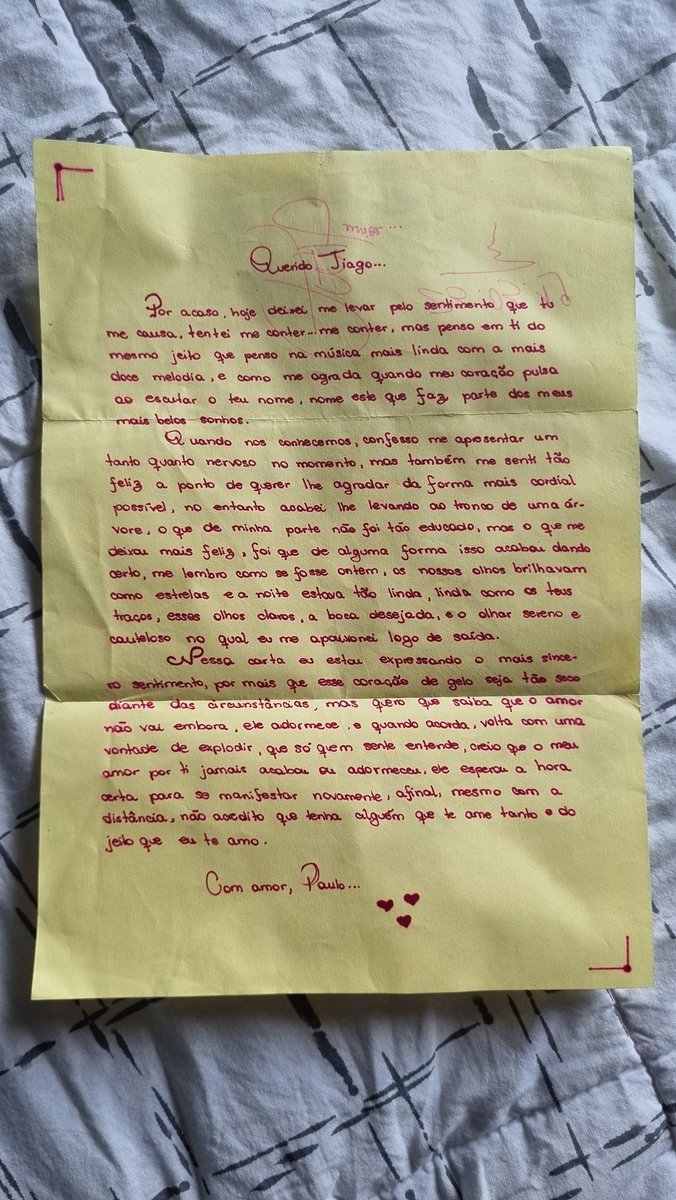 Querido Tiago...
Por acaso, hoje deixei me levar pelo sentimento que tu
me causa, tentei me conter... me conter, mas penso em ti do
mesmo jeito que penso na música mais linda com a mais
doce melodia, e como me agrada quando meu coração pulsa
ao escutar o teu nome, nome este que faz parte dos meus
mais belos sonhos.
Quando nos conhecemos, confesso me apresentar um
tanto quanto nervoso no momento, mas também me senti tão
feliz a ponto de querer lhe agradar da forma mais cordial
possível, no entanto acabei lhe levando ao tronco de uma ár-
vore, o que de minha parte não foi tão educado, mas o que me
deixou mais feliz, foi que de alguma forma isso acabou dando
certo, me lembro como se fosse ontem, os nossos olhos brilhavam
como estrelas e a noite estava tão linda, linda como os teus
traços, esses olhos claros, a boca desejada, e o olhar sereno e
cauteloso no qual eu me apaixonei logo de saída.
Nessa carta eu estou expressando o mais since-
ro sentimento, por mais que esse coração de gelo seja tão seco
diante das circunstâncias, mas quero que saiba que o amor
não vai embora, ele adormece, e quando acorda, volta com uma
vontade de explodir, que só quem sente entende, creio que o meu
amor por ti jamais acabou ou adormeceu, ele esperou a hora
certa para se manifestar novamente, afinal, mesmo com a
distância, não acredito que tenha alguém que te ame tanto e do
jeito que eu te amo.
Com amor, Paulo...